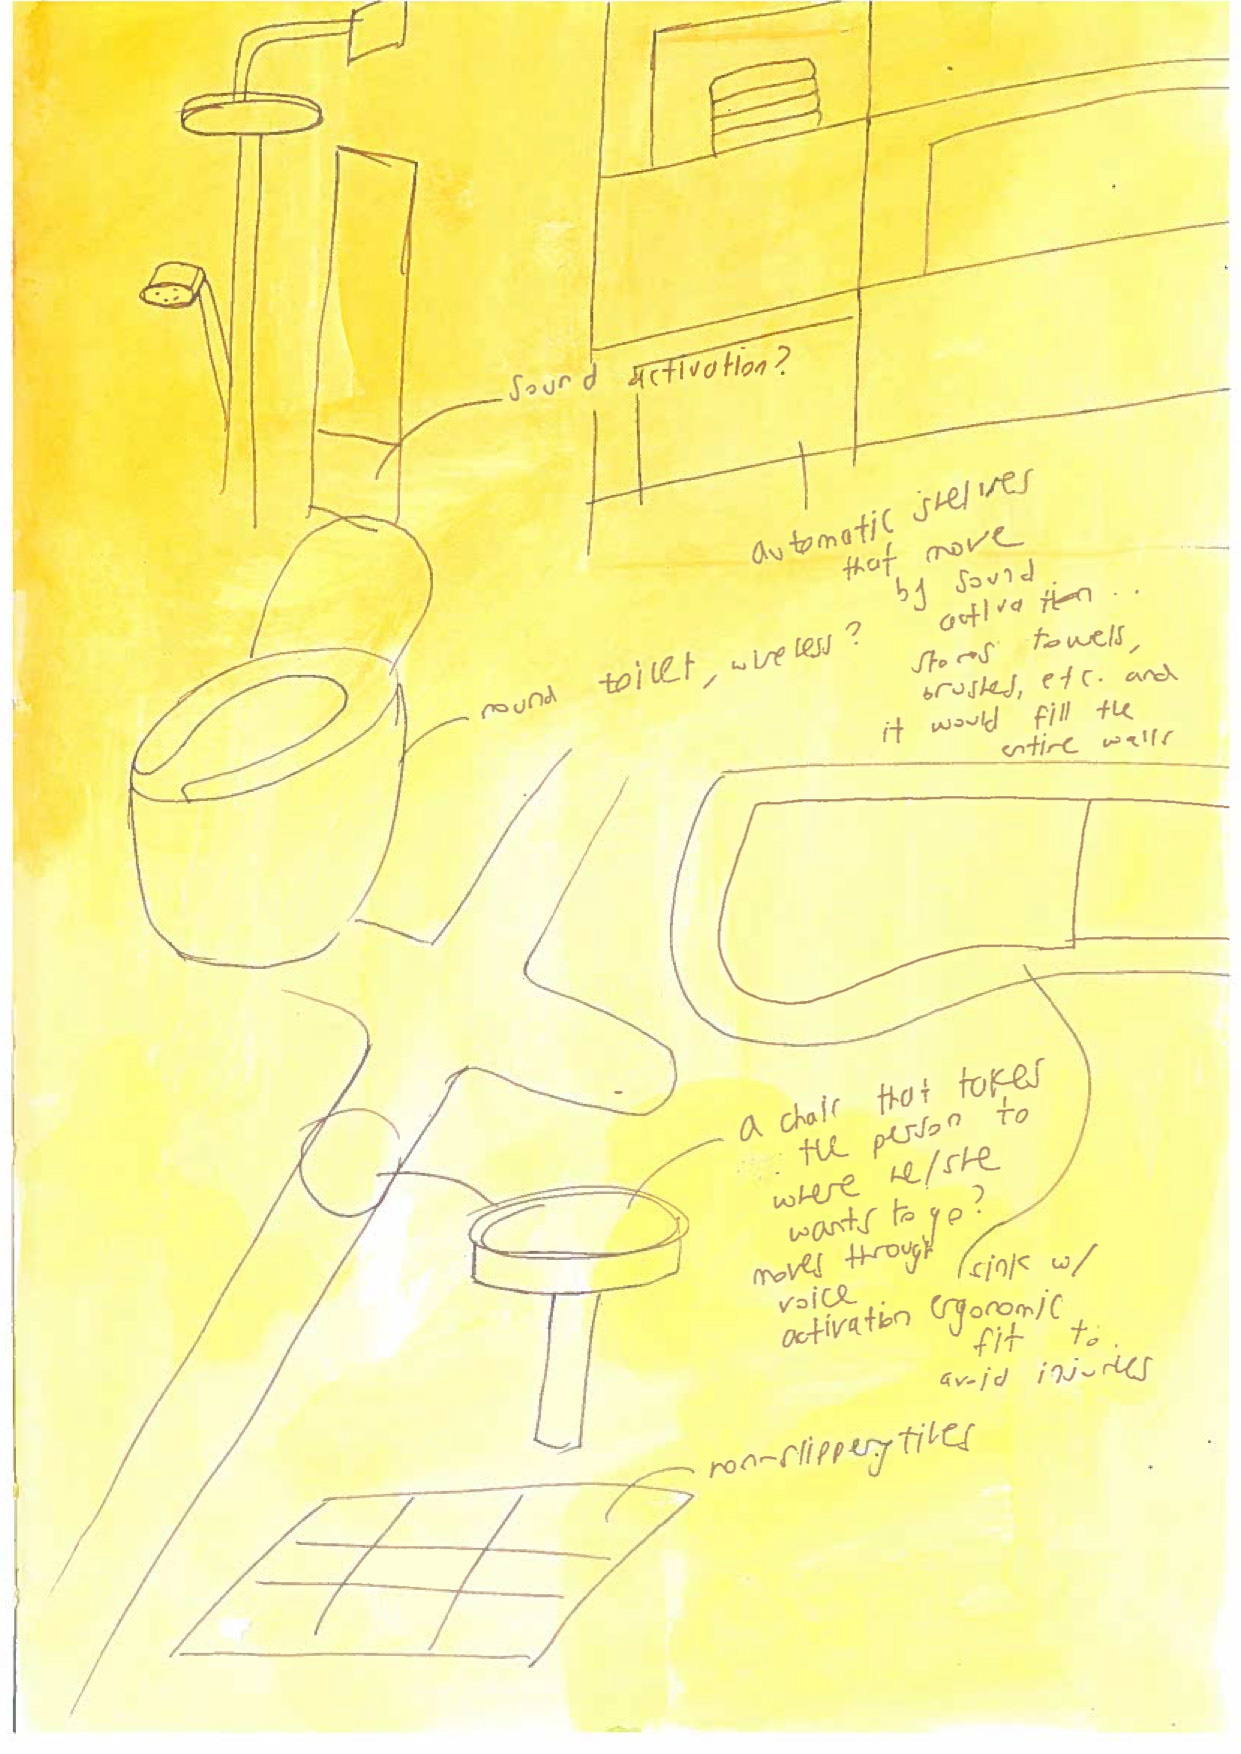 sound activation?
automatic shelves
that move
by sound
activation..
stores towels,
brushes, etc. and
it would fill the
entire walls
round toilet, wireless?
a chair that takes
the person to
where he/she
wants to go?
moves through
voice
activation
sink w/
ergonomic
fit to
avoid injuries
non-slippery tiles